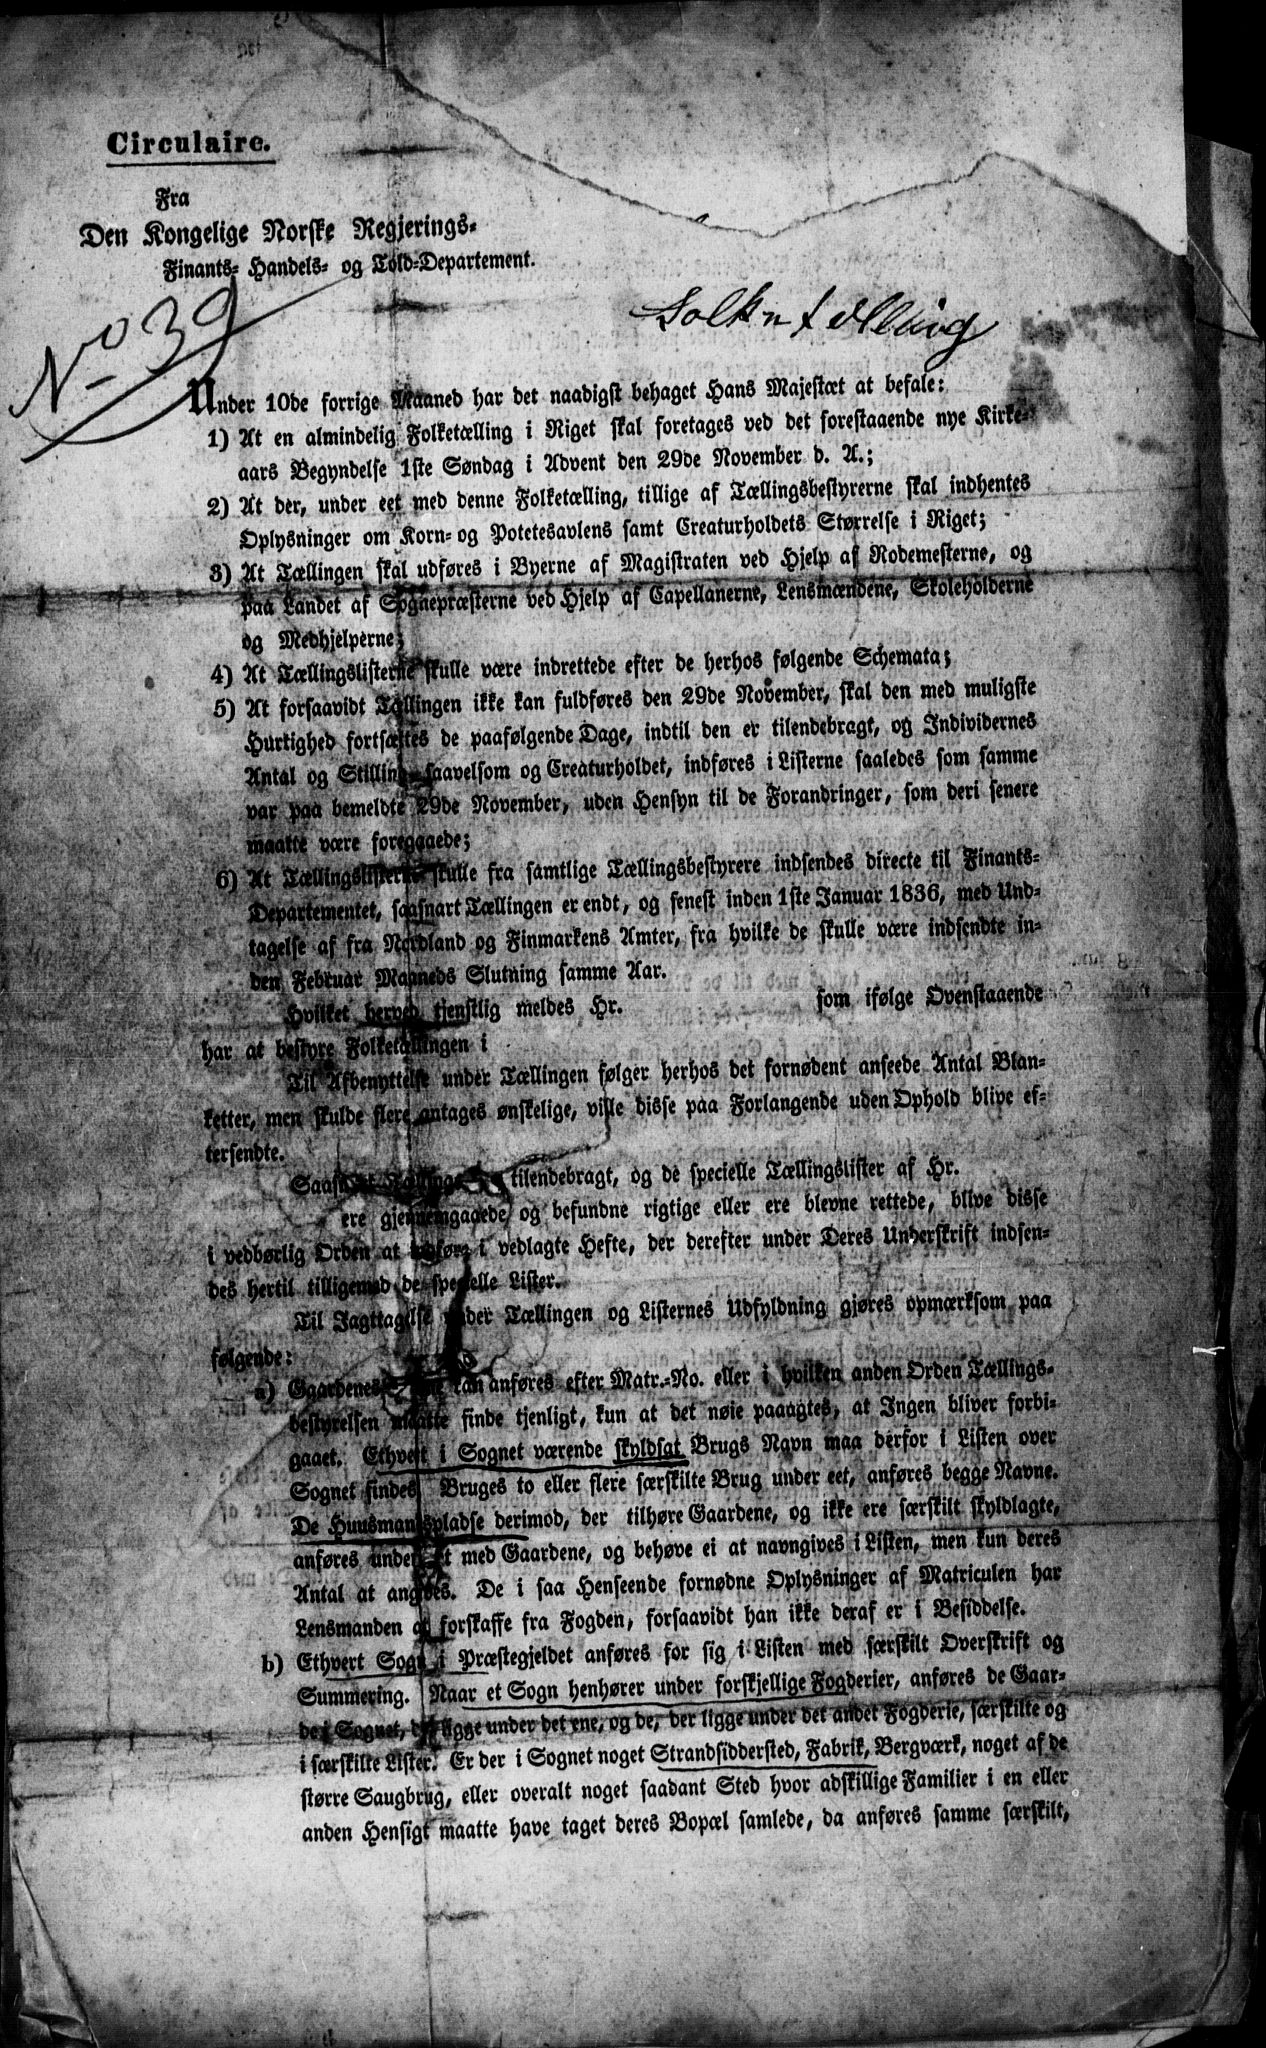 Circulaire.
Fra
Den Kongelige Norske Regjerings-
Finants- Handels- og Told-Departement.
No 39
Folketælling
Under 10de forrige Maaned har det naadigst behaget Hans Majestæt at befale:
1) At en almindelig Folketælling i Riget skal foretages ved det forestaaende nye Kirke-
aars Begyndelse 1ste Søndag i Advent den 29de November d. A.;
2) At der, under eet med denne Folketælling, tillige af Tællingsbestyrerne skal indhentes
Oplysninger om Korn- og Potetesavlens samt Creaturholdets Størrelse i Riget;
3) At Tællingen skal udføres i Byerne af Magistraten ved Hjelp af Rodemesterne, og
paa Landet af Sognepræsterne ved Hjelp af Capellanerne, Lensmændene, Skoleholderne
og Medhjelperne;
4) At Tællingslisterne skulle være indrettede efter de herhos følgende Schemata;
5) At forsaavidt Tællingen ikke kan fuldføres den 29de November, skal den med muligste
Hurtighed fortsættes de paafølgende Dage, indtil den er tilendebragt, og Individernes
Antal og Stilling saavelsom og Creaturholdet, indføres i Listerne saaledes som samme
var paa bemeldte 29de November, uden Hensyn til de Forandringer, som deri senere
maatte være foregaaede;
6) At Tællingslisterne skulle fra samtlige Tællingsbestyrere indsendes directe til Finants-
Departementet, saasnart Tællingen er endt, og senest inden 1ste Januar 1836, med Und-
tagelse af fra Nordland og Finmarkens Amter, fra hvilke de skulle være indsendte in-
den Februar Maaneds Slutning samme Aar.
Hvilket herved tjenstlig meldes Hr. som ifølge Ovenstaaende
har at bestyre Folketællingen i
Til Afbenyttelse under Tællingen følger herhos det fornødent anseede Antal Blan-
ketter, men skulde flere antages ønskelige, ville disse paa Forlangende uden Ophold blive ef-
tersendte.
Saasnart Tællingen er tilendebragt, og de specielle Tællingslister af Hr.
ere gjennemgaaede og befundne rigtige eller ere blevne rettede, blive disse
i vedbørlig Orden at indføre i vedlagte Hefte, der derefter under Deres Underskrift indsen-
des hertil tilligemed de specielle Lister.
Til Iagttagelse under Tællingen og Listernes Udfyldning gjøres opmærksom paa
følgende:
a) Gaardenes Navne kan anføres efter Matr.-No. eller i hvilken anden Orden Tællings-
bestyrelsen maatte finde tjenligt, kun at det nøie paaagtes, at Ingen bliver forbi-
gaaet. Ethvert i Sognet værende skyldsat Brugs Navn maa derfor i Listen over
Sognet findes. Bruges to eller flere særskilte Brug under eet, anføres begge Navne.
De Huusmandspladse derimod, der tilhøre Gaardene, og ikke ere særskilt skyldlagte,
anføres under eet med Gaardene, og behøve ei at navngives i Listen, men kun deres
Antal at angives. De i saa Henseende fornødne Oplysninger af Matriculen har
Lensmanden at forskaffe fra Fogden, forsaavidt han ikke deraf er i Besiddelse.
b) Ethvert Sogn i Præstegjeldet anføres for sig i Listen med særskilt Overskrift og
Summering. Naar et Sogn henhører under forskjellige Fogderier, anføres de Gaar-
de i Sognet, der ligge under det ene, og de, der ligge under det andet Fogderie, særskilte og
i særskilte Lister. Er der i Sognet noget Strandsiddersted, Fabrik, Bergværk, noget af de
større Saugbrug, eller overalt noget saadant Sted hvor adskillige Familier i en eller
anden Hensigt maatte have taget deres Bopæl samlede, da anføres samme særskilt,